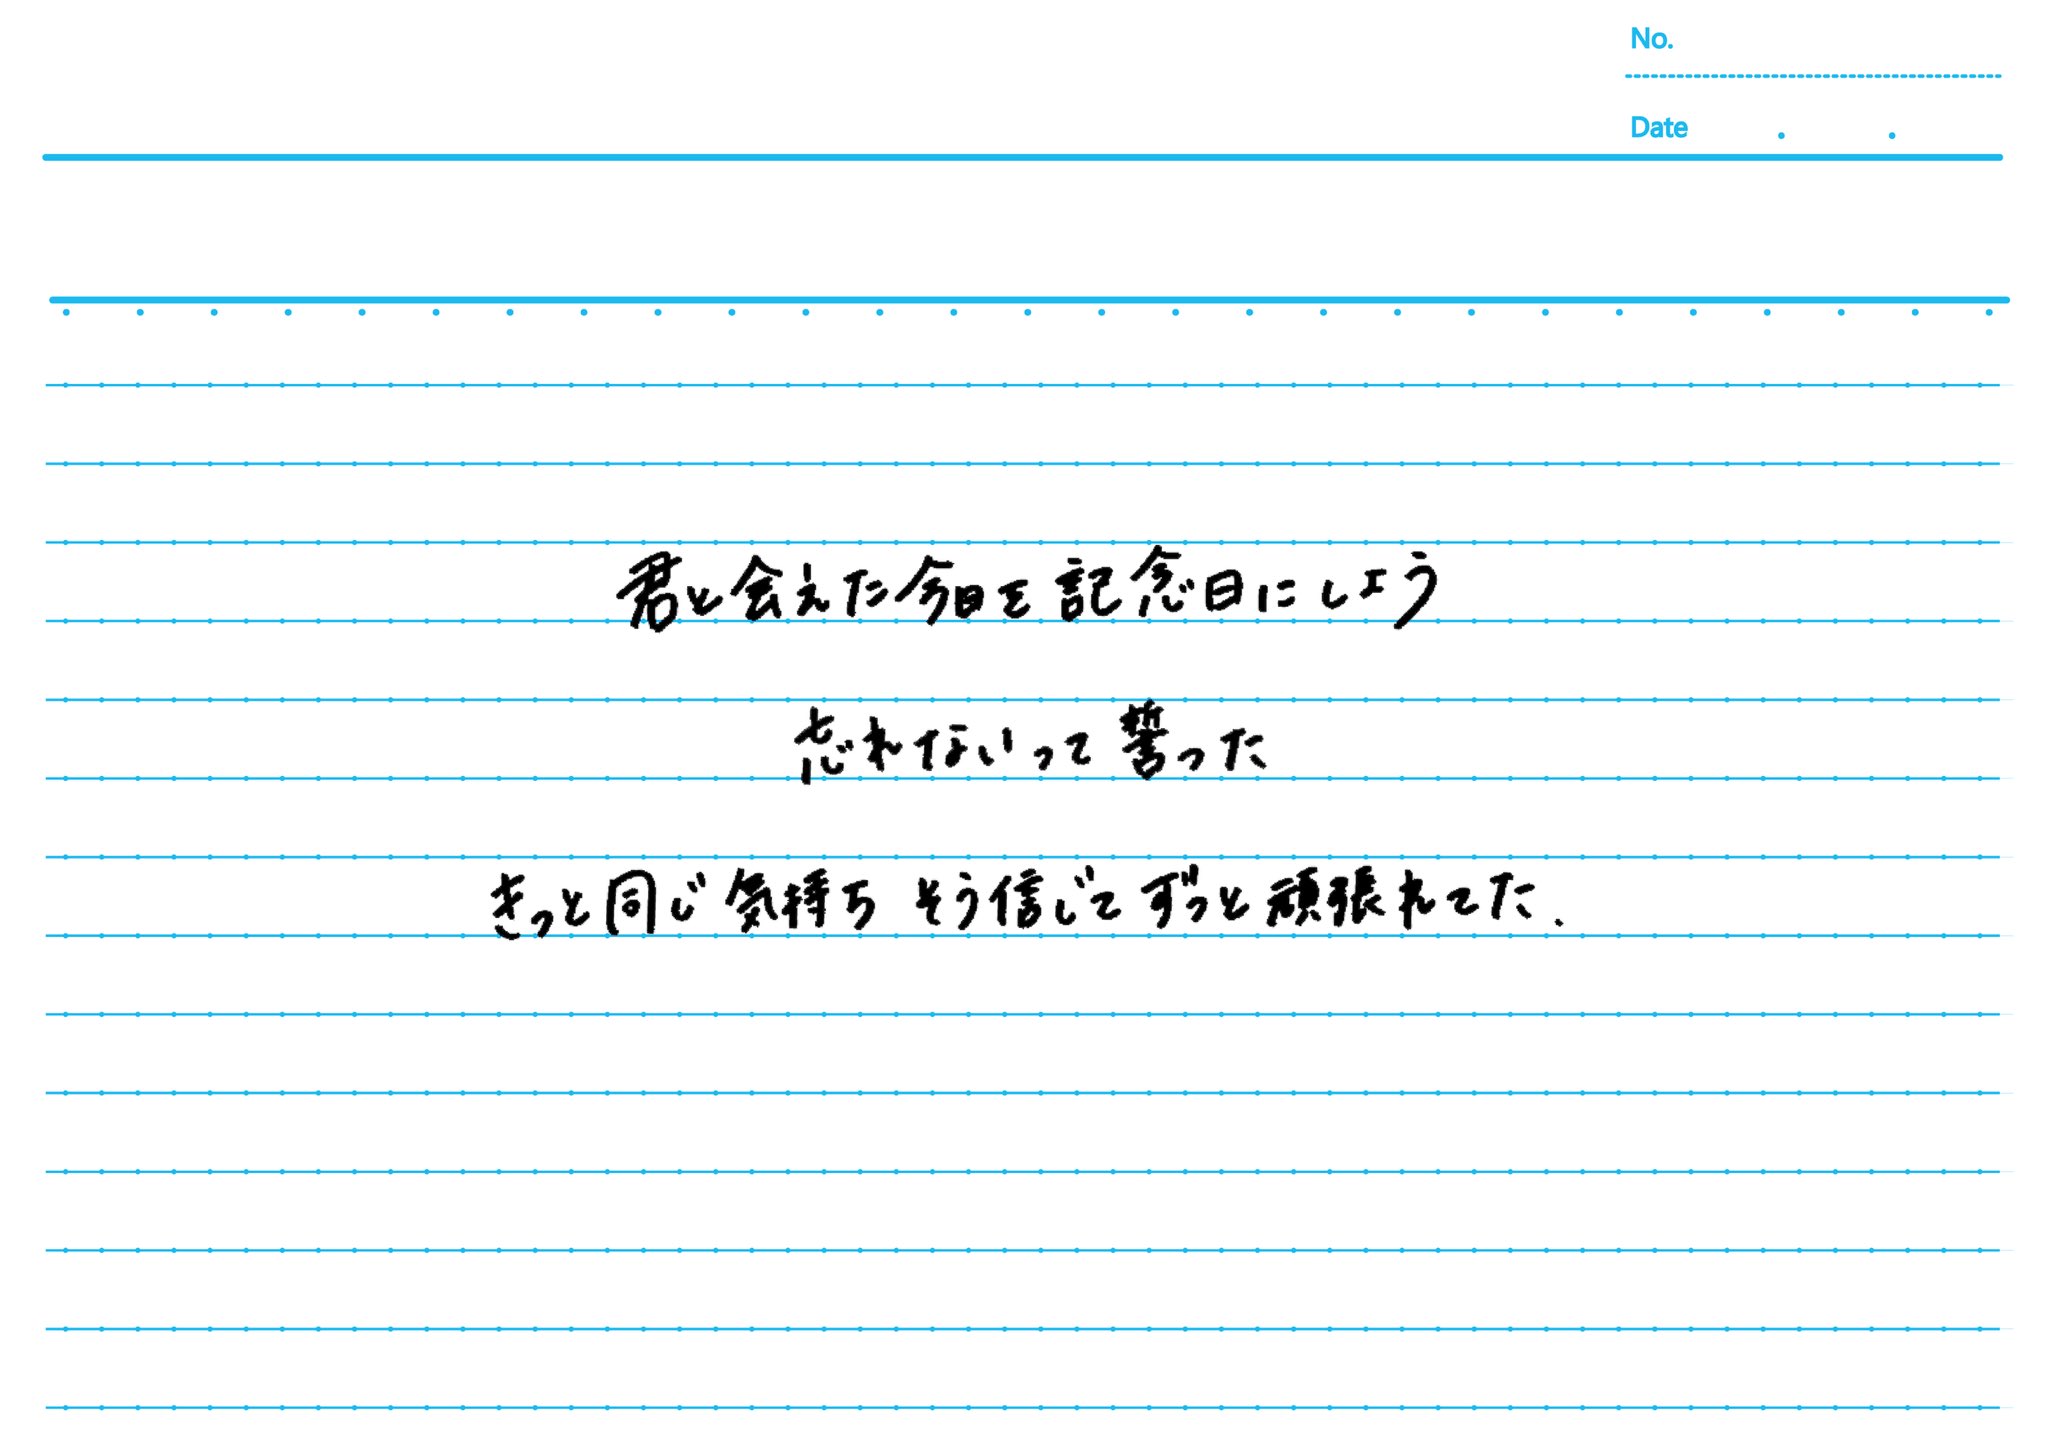 No.
Date . .
君と会えた今日を記念日にしよう
忘れないって誓った
きっと同じ気持ち そう信じてずっと頑張れてた.